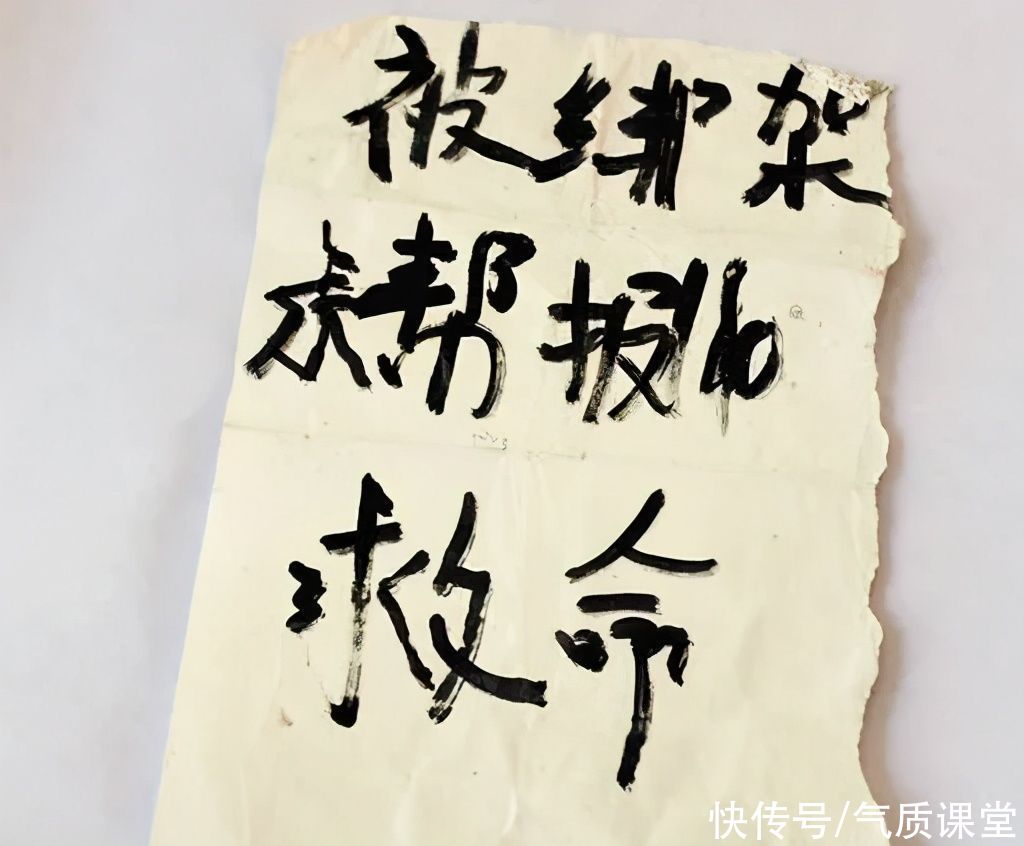 被绑架
求帮报110
救命
快传号/气质课堂